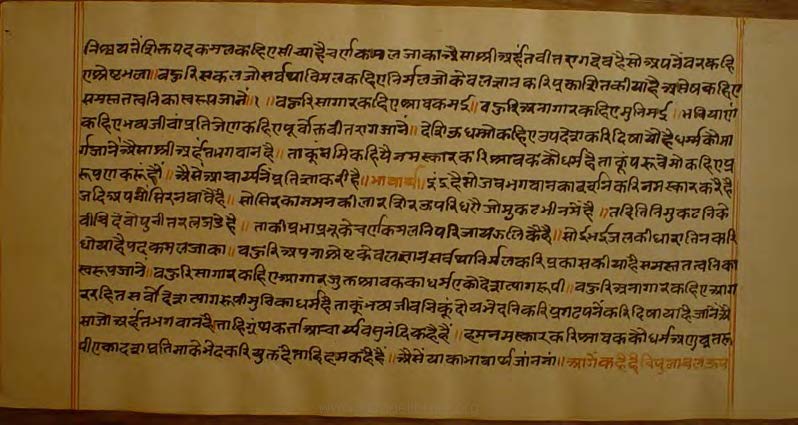 निश्चयनैंशिक्तपदकमलकहिएसींच्याहैचर्णकमलजाकाऐसाश्रीअर्हंतवीतरागदेवहैसोअपनेंवरकहि
एश्रेष्टभला॥वहुरिसकलजोसर्वथाविमलकहिएनिर्मलजोकेवलज्ञानकरिप्रकाशितकीयाहैअसेषकहिए
समस्ततत्वनिकास्वरूपजानें॥१॥वहुरिसागारकहिएश्रावकमई॥वहुरिअनागारकहिएमुनिमई॥भवियाएां
कहिएभव्यजीवांप्रतिजेएकहिएपूर्वोक्तवीतरागजानें॥देशिऊधम्मोकहिएउपदेशकरिदिषायोहैधर्मकौमा
र्गजानेंअैसाश्रीअर्हंतभगवानहै॥ताकूंनमिकहियेनमस्कारकरिश्रावककौधर्महैताकूंपरूवेमोकहिएप्र
रूपणकरूंहौं॥अैसेंआचार्यनेंप्रतिज्ञाकरीहै॥भावार्थ॥इंद्रहैसोजवभगवानकादर्शनकरिनमस्कारकरैहै
जदिअपनौंसिरनवावैहै॥सोसिरकानमनकीलारशिरऊपरिधरौजोमुकटभीनमेंहै॥तदितिनिमुकटनिके
वीचिदेदीप्यमानरतनजडेहै॥ताकीप्रभाप्रभूकेचर्णकमलनिपरिजायझलिकैहै॥सोईभईजलकीधारातिनकरि
धोयाहैपदकमलजाका॥वहुरिअपनाश्रेष्टकेवलज्ञानसर्वथानिर्मलकरिप्रकासकीयाहैसमस्ततत्वनिका
स्वरूपजानें॥वहुरिसागारकहिएआगारजुक्तश्रावककाधर्मएकोदेशत्यागरूपी॥वहुरिअनागारकहिएआगा
ररहितसर्वोदेशत्यागरूपीमुनिकाधर्महैताकूंभव्यजीवनिकूंदोयभेदनिकरिप्रगटपनेंकरिदिषायाहैजांनेंअै
साजोअर्हंतभगवानहैताहिग्रंथकर्ताआचार्यवसुनंदिकहैहैं॥हमनमस्कारकरिश्रावककौधर्मअणुव्रतरू
पीएकादशप्रतिमाकेभेदकरियुक्तहैताहिहमकहैहैं॥अैसेंयाकाभावार्थजांननां॥आगेंकहैहैविपुलाचलऊप